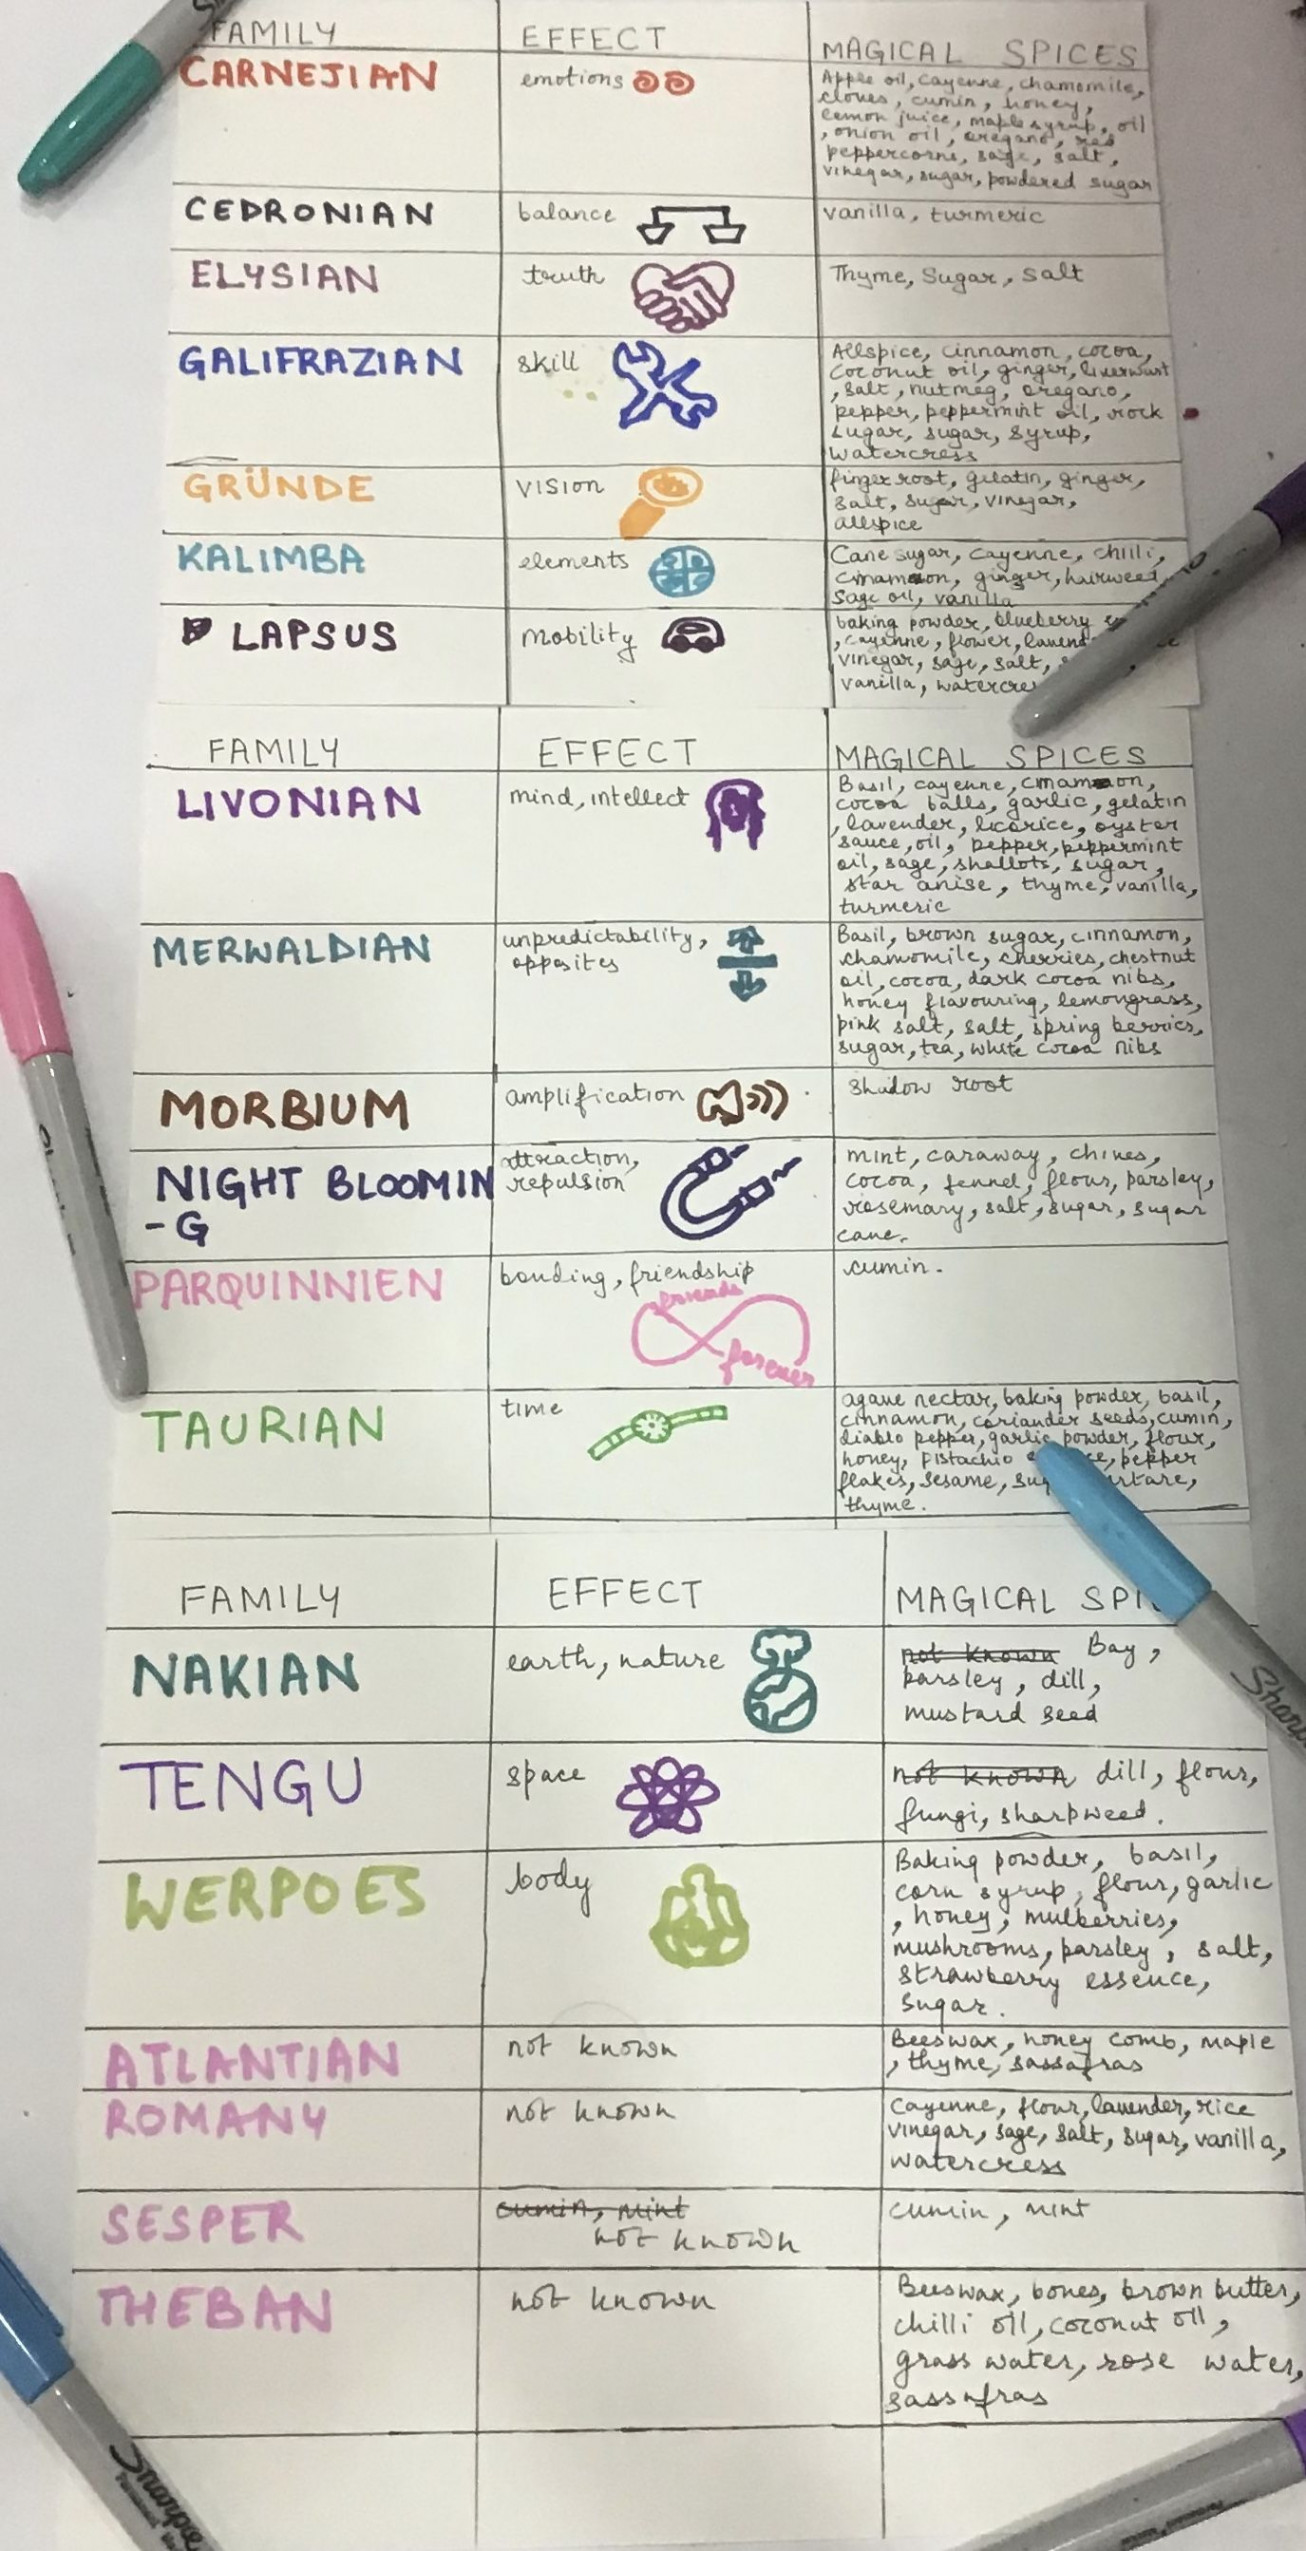 FAMILY EFFECT MAGICAL SPICES
CARNEJIAN emotions Apple oil, cayenne, chamomile,
cloves, cumin, honey,
lemon juice, maple syrup, oil
, onion oil, oregano, red
peppercorns, sage, salt,
vinegar, sugar, powdered sugar
CEDRONIAN balance vanilla, turmeric
ELYSIAN truth Thyme, Sugar, Salt
GALIFRAZIAN skill Allspice, cinnamon, cocoa,
coconut oil, ginger, liverwart
, salt, nutmeg, oregano,
pepper, peppermint oil, rock
sugar, sugar, syrup,
watercress
GRÜNDE vision fingerroot, gelatin, ginger,
salt, sugar, vinegar,
allspice
KALIMBA elements Cane sugar, cayenne, chilli,
cinamon, ginger, hairweed,
sage oil, vanilla
LAPSUS mobility baking powder, blueberry
, cayenne, flower,
vinegar, sage, salt,
vanilla,
FAMILY EFFECT MAGICAL SPICES
LIVONIAN mind, intellect Basil, cayenne, cinamon,
cocoa balls, garlic, gelatin
, lavender, licorice, oyster
sauce, oil, pepper, peppermint
oil, sage, shallots, sugar,
star anise, thyme, vanilla,
turmeric
MERWALDIAN unpredictability, Basil, brown sugar, cinnamon,
opposites chamomile, cherries, chestnut
oil, cocoa, dark cocoa nibs,
honey flavouring, lemongrass,
pink salt, salt, spring berries,
sugar, tea, white cocoa nibs
MORBIUM amplification shadow root
NIGHT BLOOMIN attraction, mint, caraway, chives,
-G repulsion cocoa, fennel, flour, parsley,
rosemary, salt, sugar, sugar
cane.
PARQUINNIEN bonding, friendship cumin.
friends
forever
TAURIAN time agave nectar, baking powder, basil,
cinnamon, coriander seeds, cumin,
diablo pepper, garlic powder, flour,
honey, pistachio pepper
flakes, sesame,
thyme.
FAMILY EFFECT MAGICAL
NAKIAN earth, nature not known Bay,
parsley, dill,
mustard seed
TENGU space not known dill, flour,
fungi, sharpweed.
WERPOES body Baking powder, basil,
corn syrup, flour, garlic
, honey, mulberries,
mushrooms, parsley, salt,
strawberry essence,
sugar.
ATLANTIAN not known Beeswax, honey comb, maple
, thyme, sassafras
ROMANY not known Cayenne, flour, lavender, rice
vinegar, sage, salt, sugar, vanilla,
watercress
SESPER cumin, mint cumin, mint
not known
THEBAN not known Beeswax, bones, brown butter,
chilli oil, coconut oil,
grass water, rose water,
sassafras
Sharpie